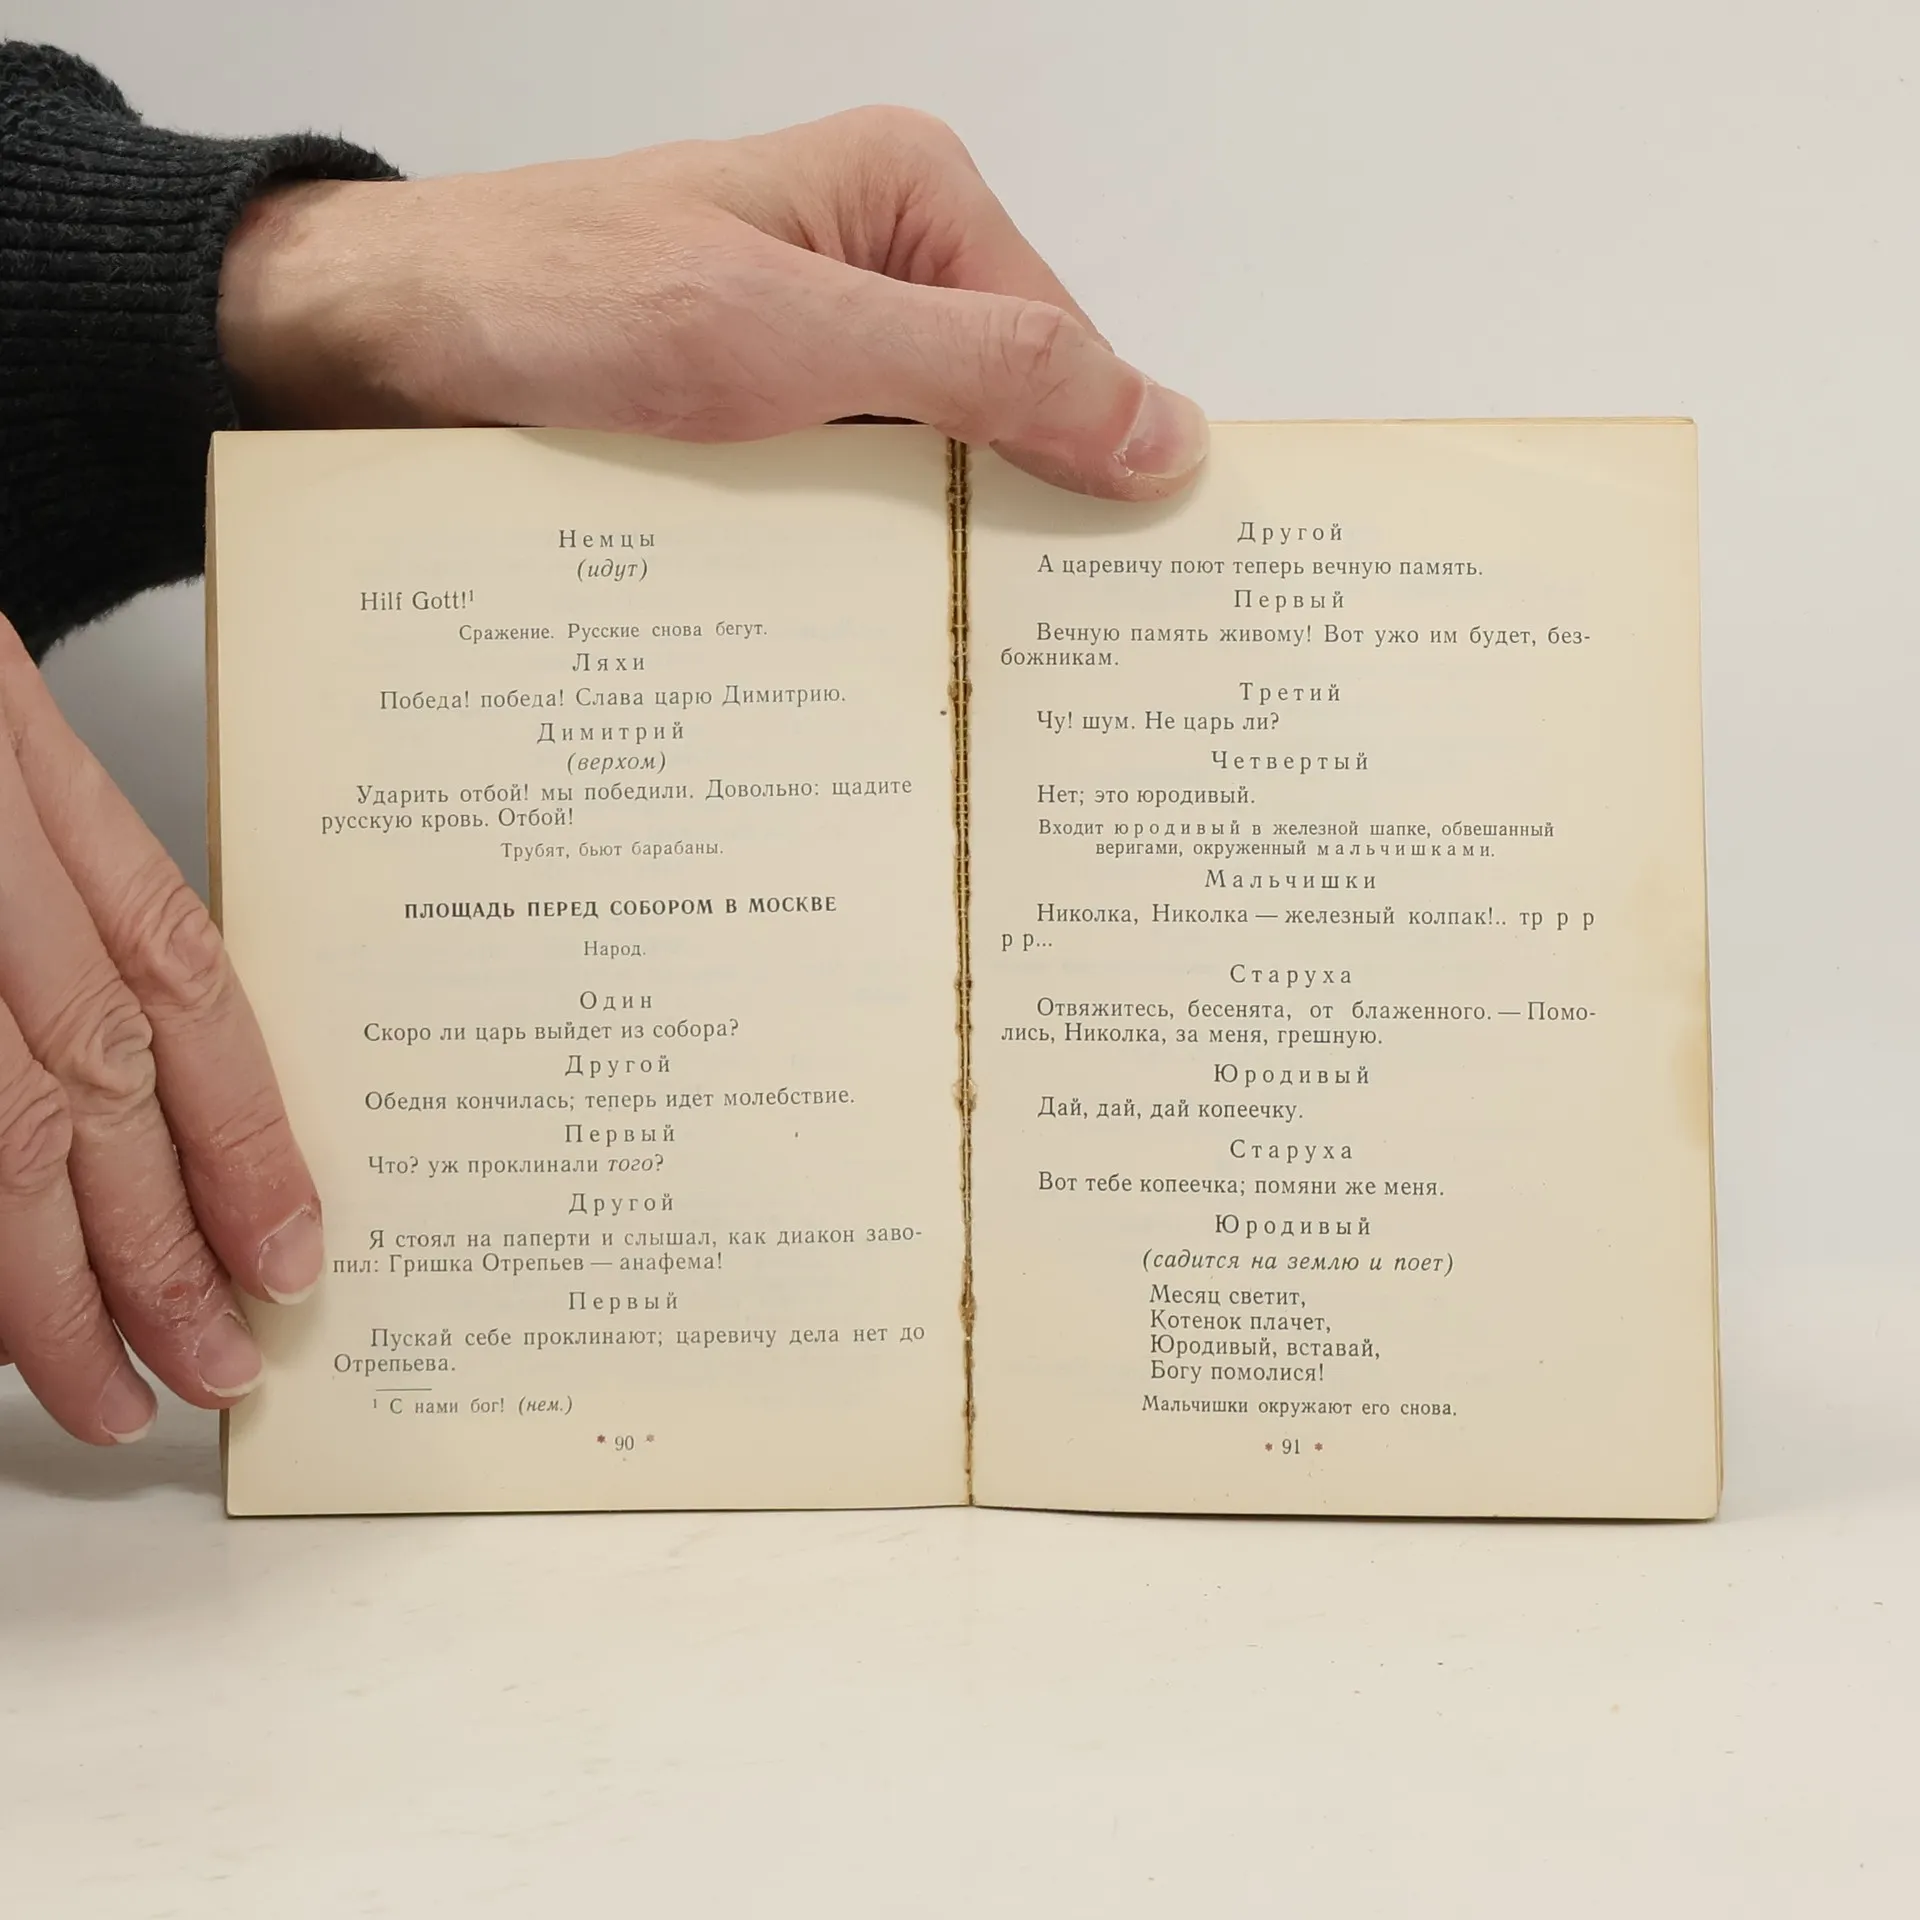 Немцы
(идут)
Hilf Gott!¹
Сражение. Русские снова бегут.
Ляхи
Победа! победа! Слава царю Димитрию.
Димитрий
(верхом)
Ударить отбой! мы победили. Довольно: щадите
русскую кровь. Отбой!
Трубят, бьют барабаны.
ПЛОЩАДЬ ПЕРЕД СОБОРОМ В МОСКВЕ
Народ.
Один
Скоро ли царь выйдет из собора?
Другой
Обедня кончилась; теперь идет молебствие.
Первый
Что? уж проклинали того?
Другой
Я стоял на паперти и слышал, как диакон заво-
пил: Гришка Отрепьев — анафема!
Первый
Пускай себе проклинают; царевичу дела нет до
Отрепьева.
¹ С нами бог! (нем.)
* 90 *
Другой
А царевичу поют теперь вечную память.
Первый
Вечную память живому! Вот ужо им будет, без-
божникам.
Третий
Чу! шум. Не царь ли?
Четвертый
Нет; это юродивый.
Входит юродивый в железной шапке, обвешанный
веригами, окруженный мальчишками.
Мальчишки
Николка, Николка — железный колпак!.. тр р р
р р...
Старуха
Отвяжитесь, бесенята, от блаженного. — Помо-
лись, Николка, за меня, грешную.
Юродивый
Дай, дай, дай копеечку.
Старуха
Вот тебе копеечка; помяни же меня.
Юродивый
(садится на землю и поет)
Месяц светит,
Котенок плачет,
Юродивый, вставай,
Богу помолися!
Мальчишки окружают его снова.
* 91 *